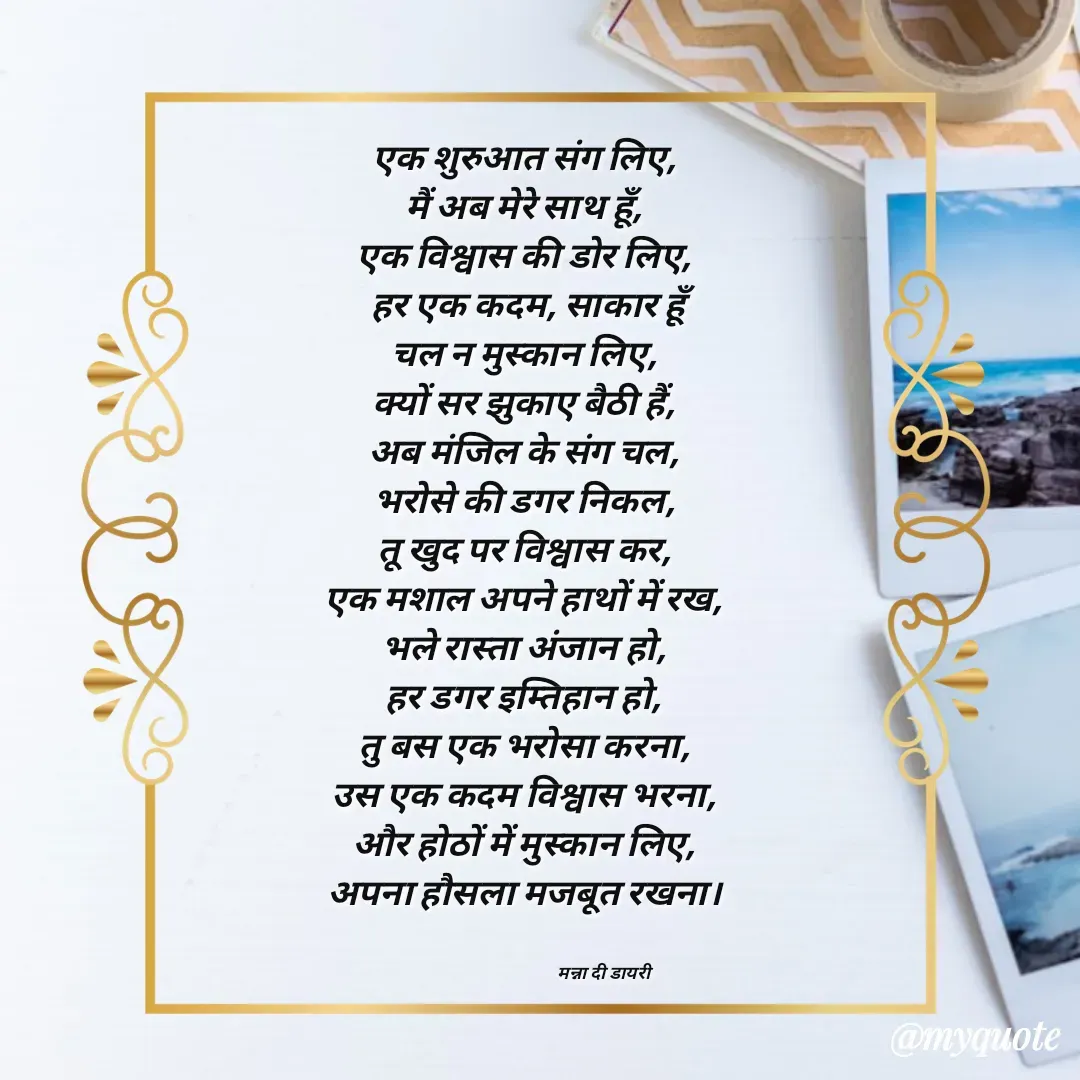 एक शुरुआत संग लिए,
मैं अब मेरे साथ हूँ,
एक विश्वास की डोर लिए,
हर एक कदम, साकार हूँ
चल न मुस्कान लिए,
क्यों सर झुकाए बैठी हैं,
अब मंजिल के संग चल,
भरोसे की डगर निकल,
तू खुद पर विश्वास कर,
एक मशाल अपने हाथों में रख,
भले रास्ता अंजान हो,
हर डगर इम्तिहान हो,
तु बस एक भरोसा करना,
उस एक कदम विश्वास भरना,
और होठों में मुस्कान लिए,
अपना हौसला मजबूत रखना।
मन्ना दी डायरी
@myquote